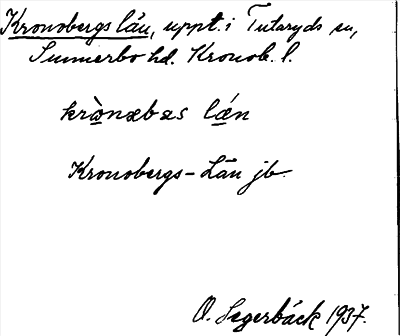 Kronobergs län, uppt. i Tutaryds sn,
Sunnerbo hd. Kronob. l.
krònæbæs læn
Kronobergs-Län jb.
O. Segerbäck 1937.